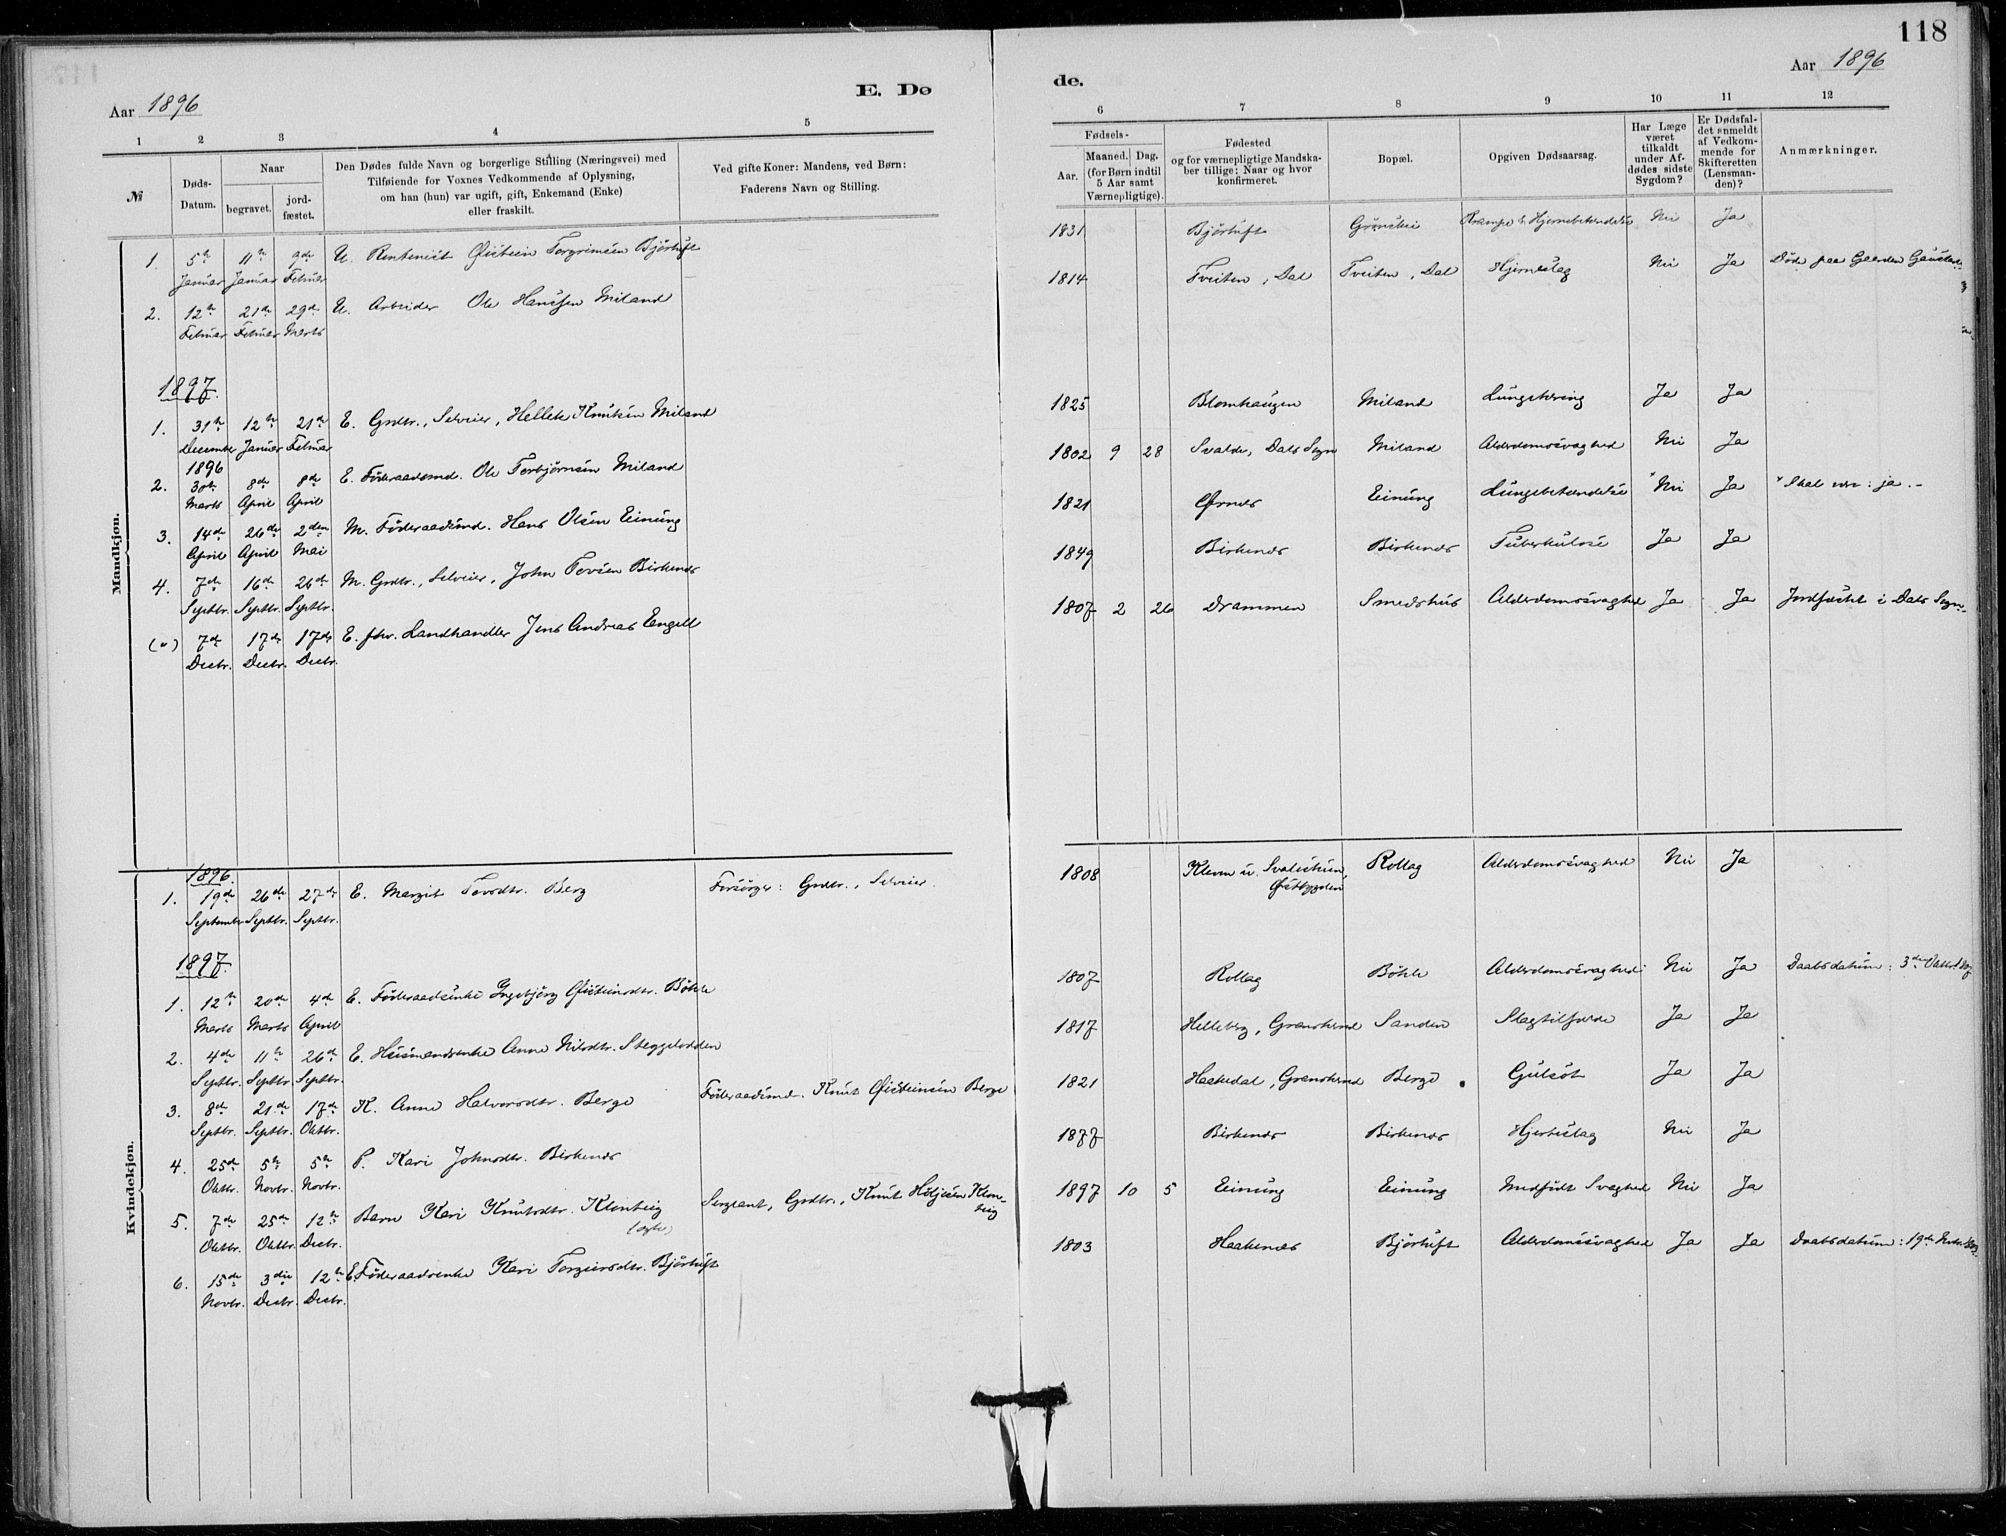 118
Aar 1896
E. Dø
de.
Aar 1896
1 2 3 4 5
6 7 8 9 10 11 12
№
Døds-Datum.
Naar
begravet.
jord-fæstet.
Den Dødes fulde Navn og borgerlige Stilling (Næringsvei) med
Tilføiende for Voxnes Vedkommende af Oplysning,
om han (hun) var ugift, gift, Enkemand (Enke)
eller fraskilt.
Ved gifte Koner: Mandens, ved Børn:
Faderens Navn og Stilling.
Fødsels-
Aar.
Maaned. Dag.
(for Børn indtil
5 Aar samt
Værnepligtige).
Fødested
og for værnepligtige Mandska-
ber tillige: Naar og hvor
konfirmeret.
Bopæl.
Opgiven Dødsaarsag.
Har Læge
været
tilkaldt
under Af-
dødes sidste
Sygdom?
Er Dødsfal-
det anmeldt
af Vedkom-
mende for
Skifteretten
(Lensman-
den)?
Anmærkninger.
Mandkjøn.
1. 5te 11te 9de U. Rentenist Øistein Torgrimsen Bjørtuft
Januar Januar Februar
1831 Bjørtuft Grønskei Krampe & Hjernebetændelse Nei Ja
2. 12te 21de 29de U. Arbeider Ole Hanssen Miland
Februar Februar Marts
1814 Tveiten, Dal Tveiten, Dal Hjerneslag Nei Ja Døde paa Gaarden Gaustad
1897.
1. 31te 12te 21de E. Grdbr., Selveier, Hellek Knutsen Miland
December Januar Februar
1896
1825 Blomhaugen Miland Lungetæring Ja Ja
2. 30te 8de 8de E. Føderaadsmd. Ole Torbjørnsen Miland
Marts April April
1802 9 28 Svalde, Dals Sogn Miland Alderdomssvaghed Nei Ja
3. 14de 26de 2den M. Føderaadsmd. Hans Olsen Einung
April April Mai
1821 Ørnes Einung Lungebetændelse *Nei Ja *Skal være: ja. -
4. 7de 16de 26de M. Grdbr., Selveier, John Tovsen Birkenes
Septbr. Septbr. Septbr.
1849 Birkenes Birkenes Tuberkulose Ja Ja
7de 17de 17de E. fhv. Landhandler Jens Andreas Engell
Decbr. Decbr. Decbr.
1807 2 26 Drammen Smedshus Alderdomssvaghed Ja Ja Jordfæstet i Dals Sogn
Kvindekjøn.
1896.
1. 19de 26de 27de E. Margit Tovsdtr. Berg Forsørger: Grdbr., Selveier.
September Septbr. Septbr.
1808 Østbygden Rollag Alderdomssvaghed Nei Ja
1897.
1. 12te 20de 4de E. Føderaadsenke Ingebjørg Øisteinsdtr. Bøhle
Marts Marts April
1807 Rollag Bøhle Alderdomssvaghed Nei Ja Daabsdatum: 3de Oktbr.
2. 4de 11te 26de E. Husmandsenke Anne Nilsdtr. Steggelodden
Septbr. Septbr. Septbr.
1817 Helleberg, Gransherad Sanden Slagtilfælde Ja Ja
3. 8de 21de 17de K. Anne Halvorsdtr. Berge Føderaadsmd. Knut Øisteinsen Berge
Septbr. Septbr. Oktbr.
1821 Haakedal, Gransherad Berge Gulsot Ja Ja
4. 25de 5te 5te P. Kari Johnsdtr. Birkenes
Oktbr. Novbr. Novbr.
1877 Birkenes Birkenes Hjerteslag Nei Ja
5. 7de 25de 12te Barn Kari Knutsdtr. Klonteig (ægte) Sergeant, Grdbr., Knut Høljesen Klonteig
Oktbr. Oktbr. Decbr.
1897 10 5 Einung Einung Medfødt Svaghed Nei Ja
6. 15de 3die 12te E. Føderaadsenke Kari Torgeirsdtr. Bjørtuft
Novbr. Decbr. Decbr.
1803 Haakenes Bjørtuft Alderdomssvaghed Ja Ja Daabsdatum: 19de